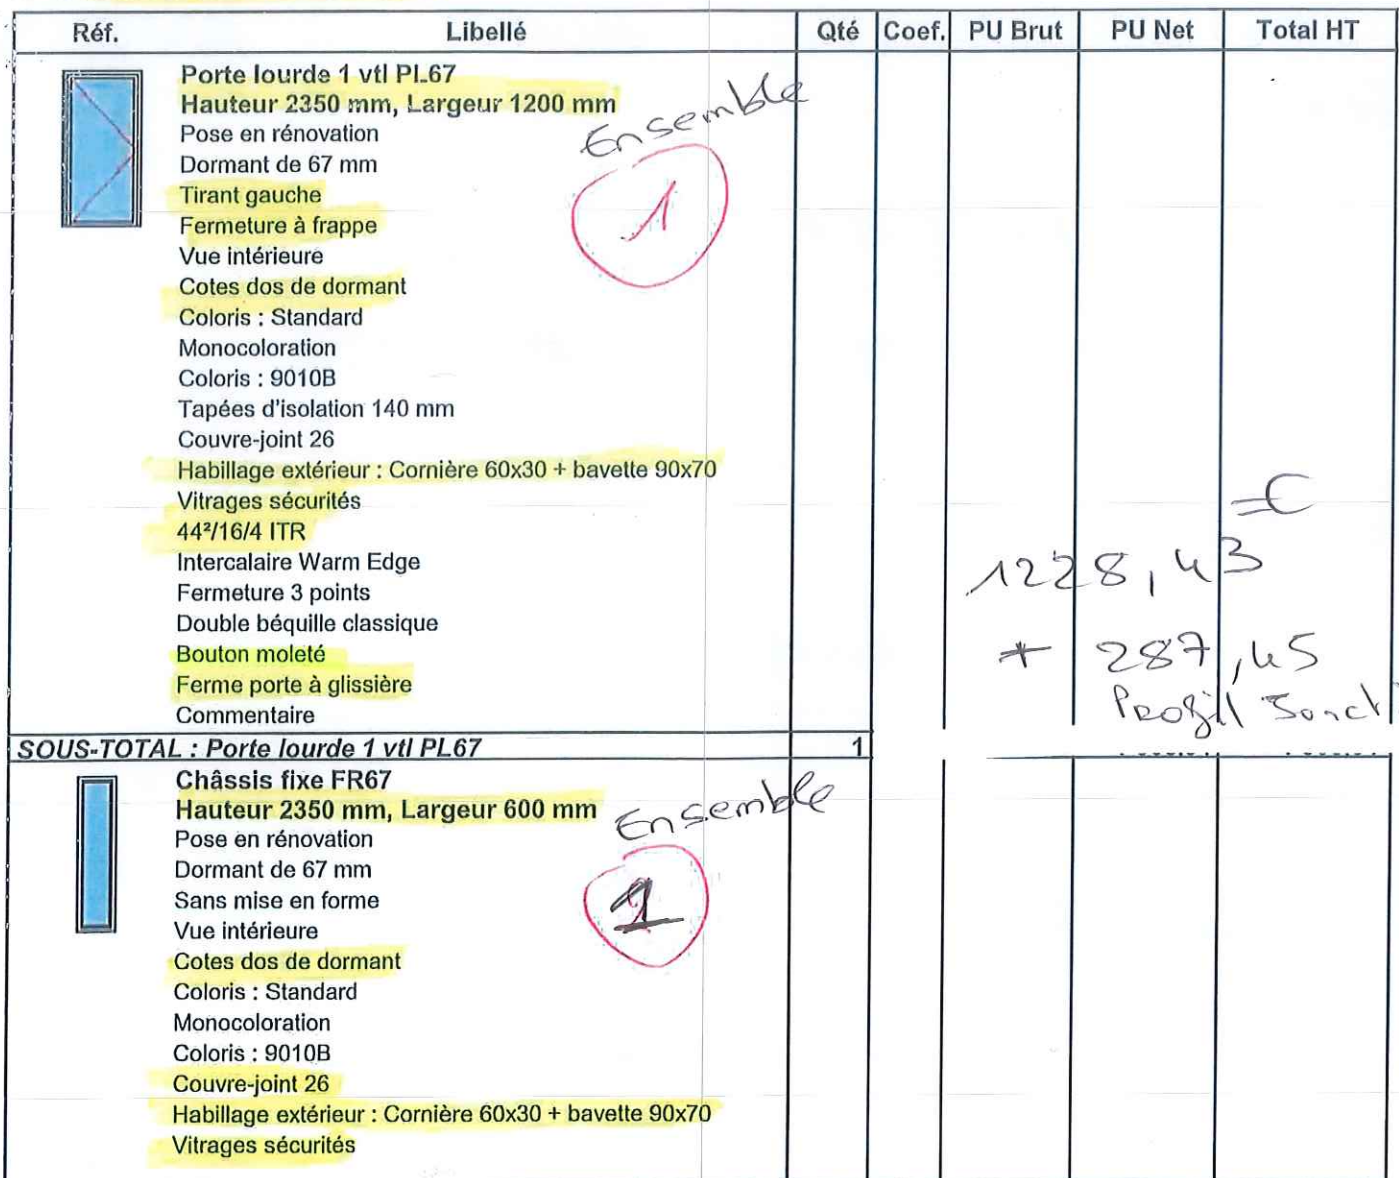 Réf. Libellé Qté Coef. PU Brut PU Net Total HT
Porte lourde 1 vtl PL67
Hauteur 2350 mm, Largeur 1200 mm
Ensemble
Pose en rénovation
Dormant de 67 mm
1
Tirant gauche
Fermeture à frappe
Vue intérieure
Cotes dos de dormant
Coloris : Standard
Monocoloration
Coloris : 9010B
Tapées d'isolation 140 mm
Couvre-joint 26
Habillage extérieur : Cornière 60x30 + bavette 90x70
Vitrages sécurités
44²/16/4 ITR
Intercalaire Warm Edge
1228,43
Fermeture 3 points
Double béquille classique
Bouton moleté
+ 287,45
Ferme porte à glissière
Profil
Commentaire
SOUS-TOTAL : Porte lourde 1 vtl PL67 1
Châssis fixe FR67
Hauteur 2350 mm, Largeur 600 mm
Ensemble
Pose en rénovation
Dormant de 67 mm
Sans mise en forme
1
Vue intérieure
Cotes dos de dormant
Coloris : Standard
Monocoloration
Coloris : 9010B
Couvre-joint 26
Habillage extérieur : Cornière 60x30 + bavette 90x70
Vitrages sécurités